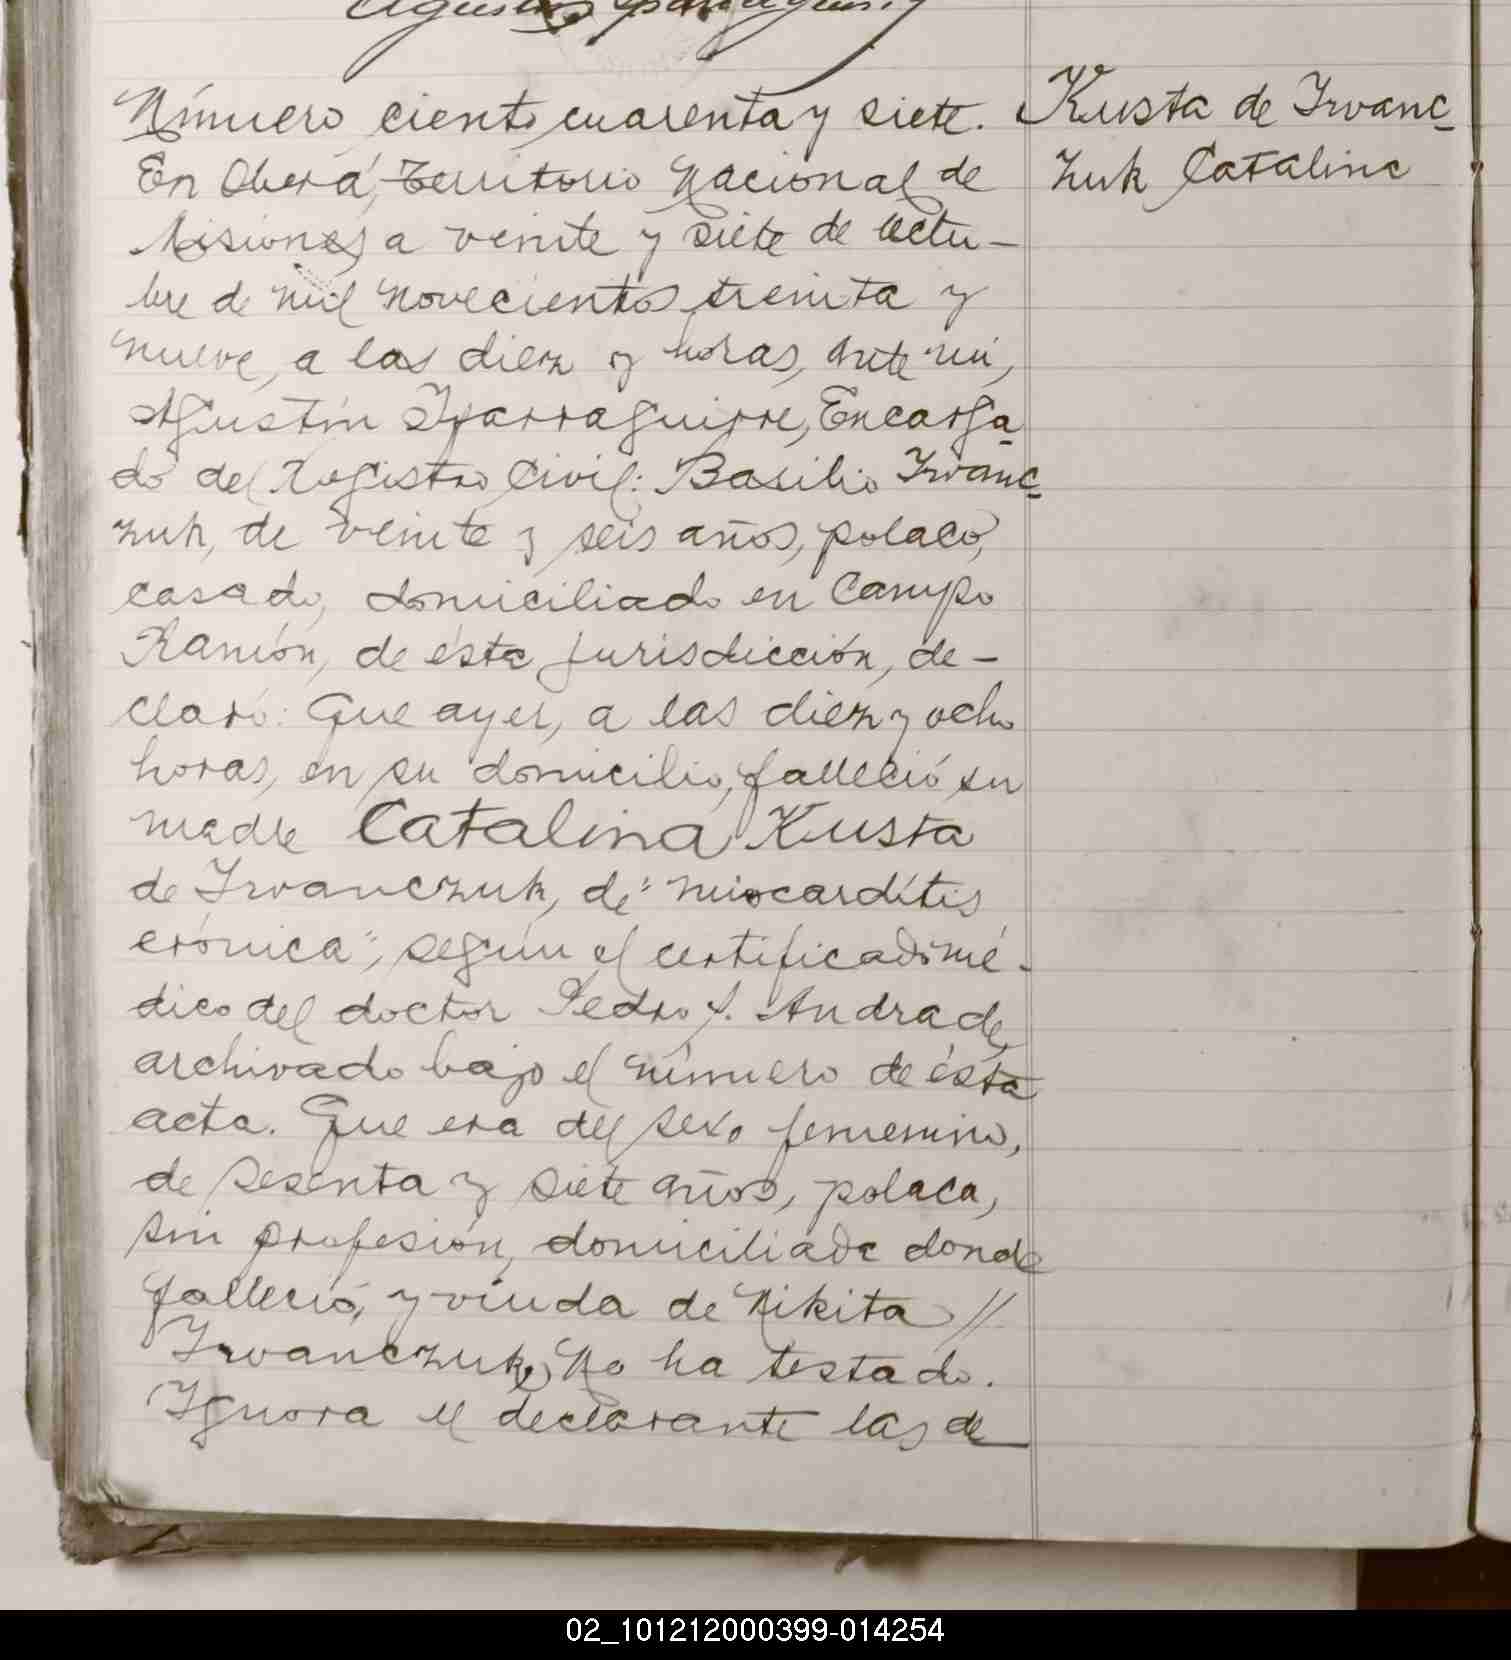 Número ciento cuarenta y siete.
Kusta de Iwanc-
zuk Catalina
En Oberá, Territorio Nacional de
Misiones, a veinte y siete de octu-
bre de mil novecientos treinta y
nueve, a las diez y horas, ante mí,
Agustín Yparraguirre, Encarga-
do del Registro Civil: Basilio Iwanc-
zuk, de veinte y seis años, polaco,
casado, domiciliado en Campo
Ramón, de ésta jurisdicción, de-
claró: Que ayer, a las diez y ocho
horas, en su domicilio, falleció su
madre Catalina Kusta
de Iwanczuk, de "miocardítis
crónica", según el certificado mé-
dico del doctor Pedro J. Andrade,
archivado bajo el número de ésta
acta. Que era del sexo femenino,
de sesenta y siete años, polaca,
sin profesión, domiciliada donde
falleció, y viuda de Nikita //
Iwanczuk, No ha testado.
Ignora el declarante las de
02_101212000399-014254